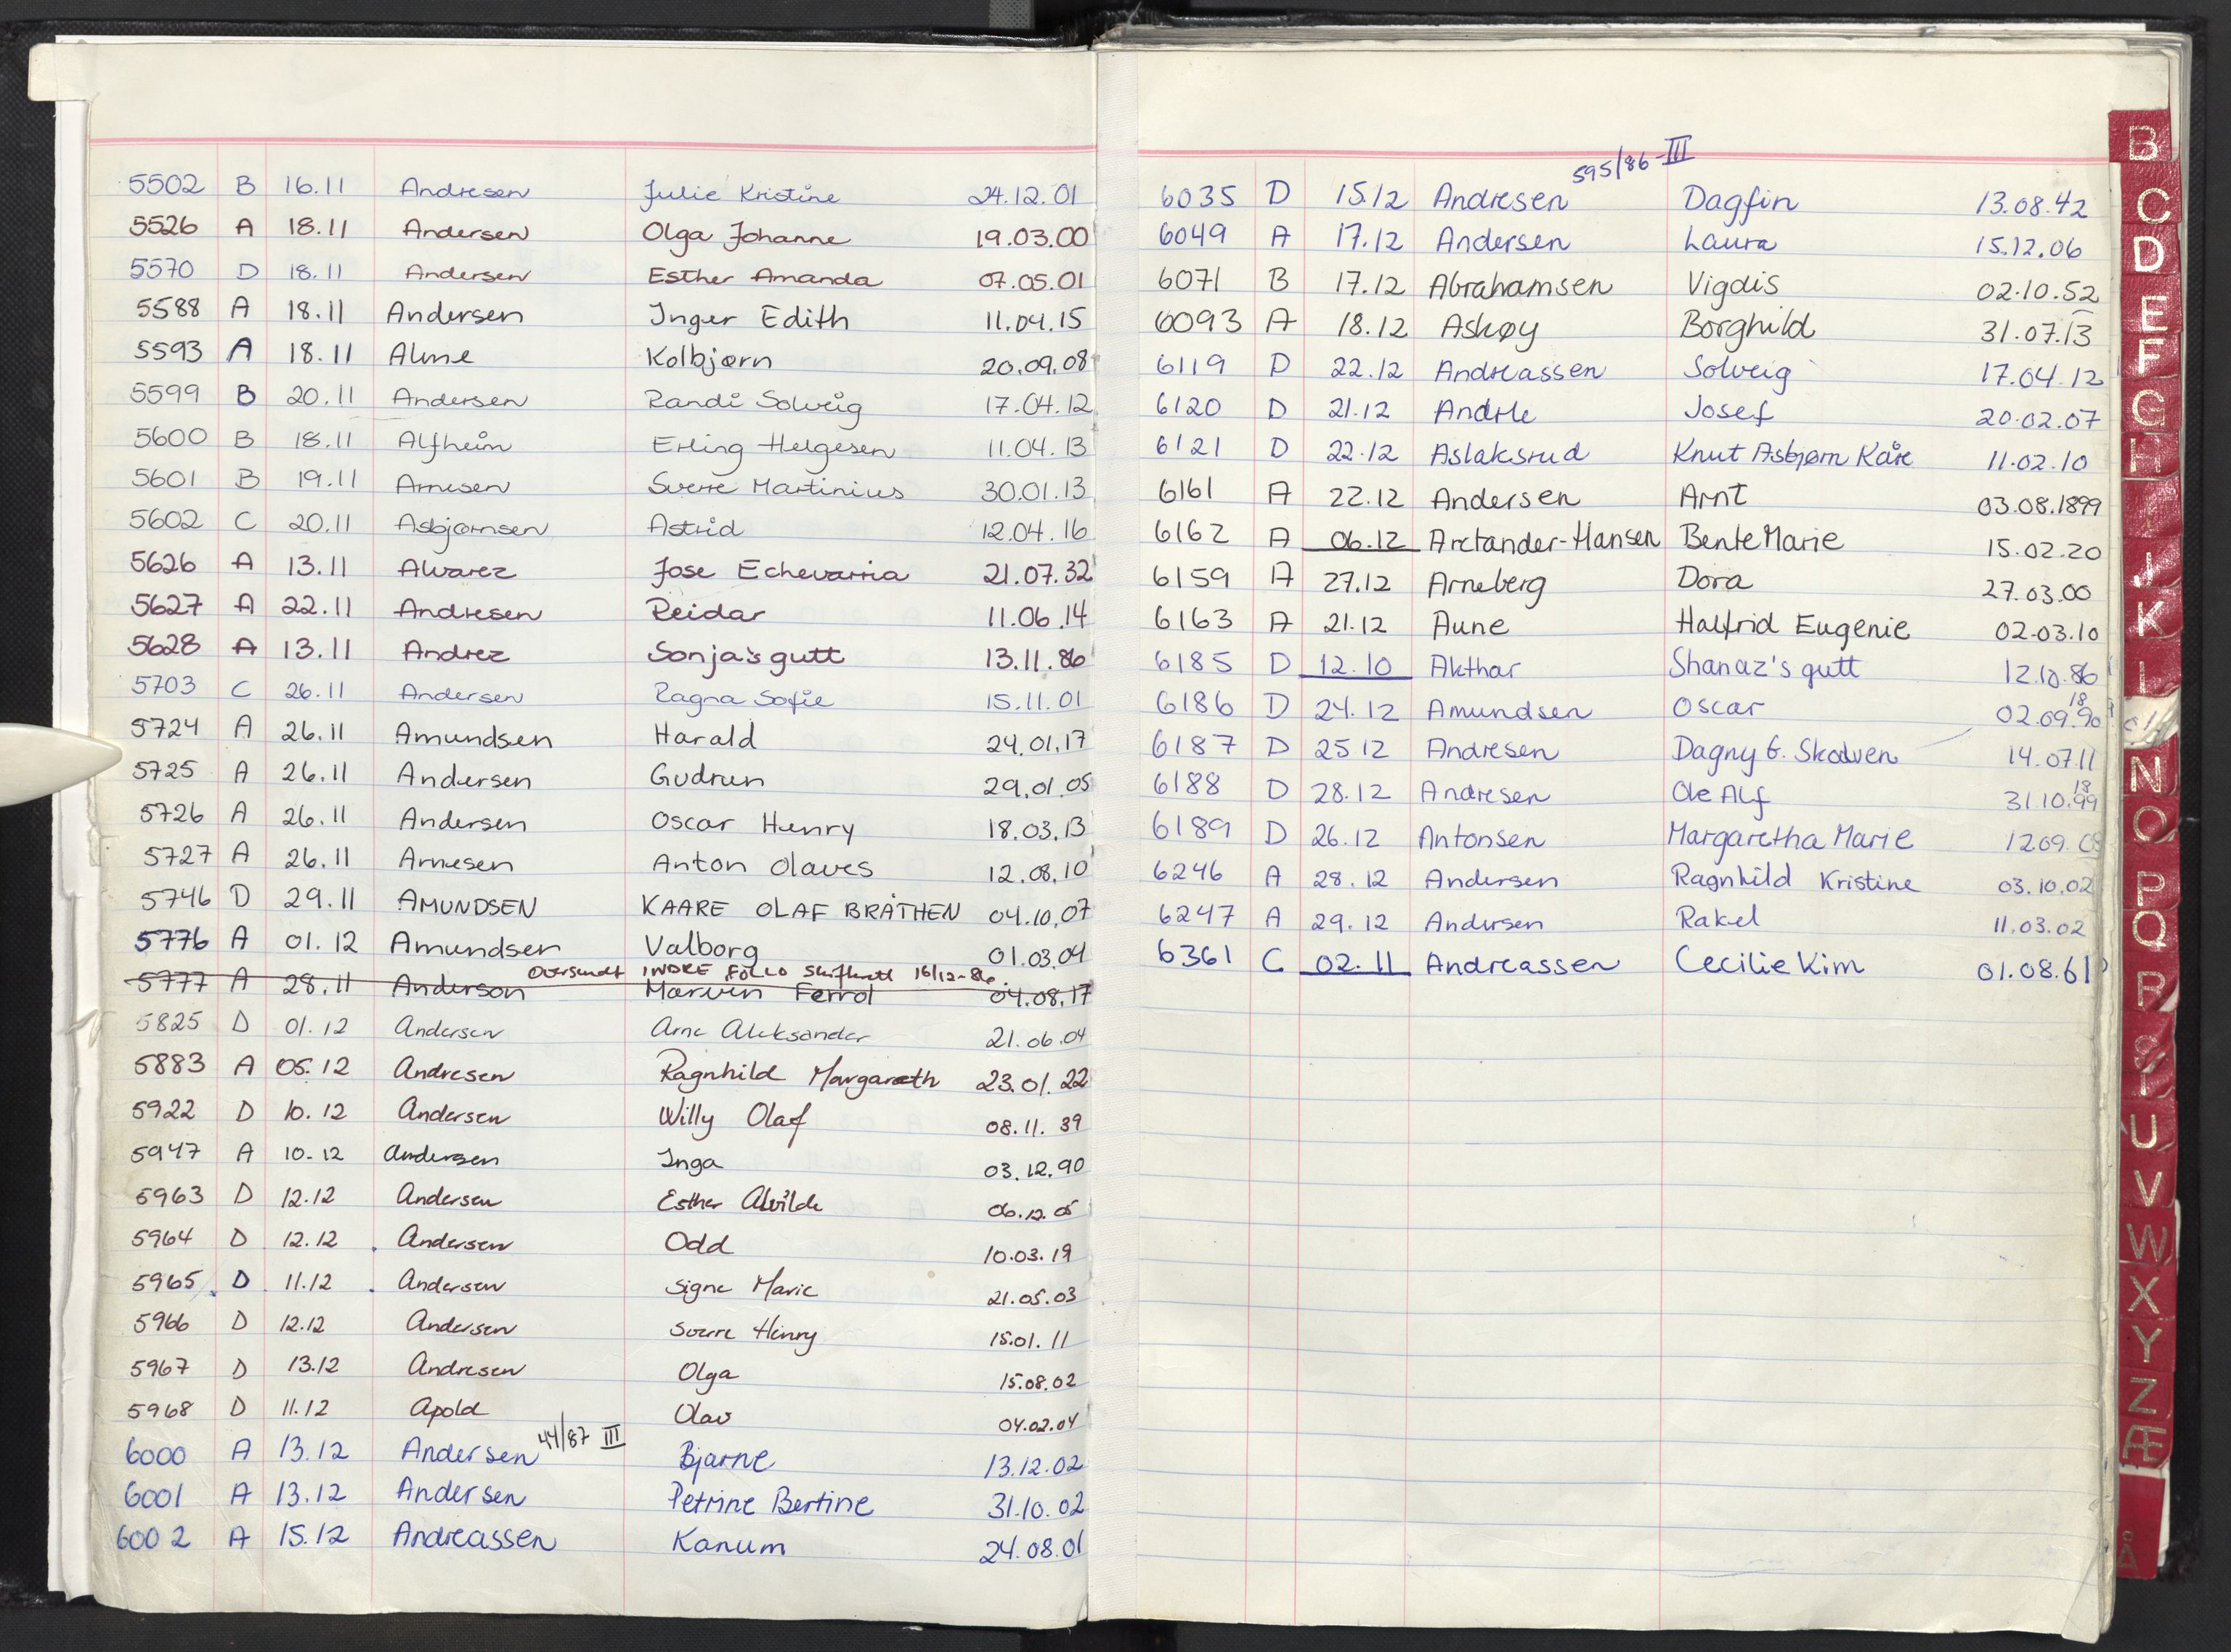 5502 B 16.11 Andresen Julie Kristine 24.12.01
5526 A 18.11 Andersen Olga Johanne 19.03.00
5570 D 18.11 Andersen Esther Amanda 07.05.01
5588 A 18.11 Andersen Inger Edith 11.04.15
5593 A 18.11 Alme Kolbjørn 20.09.08
5599 B 20.11 Andersen Randi Solveig 17.04.12
5600 B 18.11 Alfheim Erling Helgesen 11.04.13
5601 B 19.11 Arnesen Sverre Martinius 30.01.13
5602 C 20.11 Asbjørnsen Astrid 12.04.16
5626 A 13.11 Alvarez Jose Echevarria 21.07.32
5627 A 22.11 Andresen Reidar 11.06.14
5628 A 13.11 Andrez Sonja's gutt 13.11.86
5703 C 26.11 Andersen Ragna Sofie 15.11.01
5724 A 26.11 Amundsen Harald 24.01.17
5725 A 26.11 Andersen Gudrun 29.01.05
5726 A 26.11 Andersen Oscar Henry 18.03.13
5727 A 26.11 Arnesen Anton Olaves 12.08.10
5746 D 29.11 AMUNDSEN KAARE OLAF BRÅTHEN 04.10.07
5776 A 01.12 Amundsen Valborg 01.03.04
Oversendt INDRE FOLLO Skifterett 16/12-86
5777 A 28.11 Anderson Marven Ferrol 04.08.17
5825 D 01.12 Andersen Arne Aleksander 21.06.04
5883 A 05.12 Andresen Ragnhild Margareth 23.01.22
5922 D 10.12 Andersen Willy Olaf 08.11.39
5947 A 10-12 Andersen Inga 03.12.90
5963 D 12.12 Andersen Esther Alvilde 06.12.05
5964 D 12.12 Andersen Odd 10.03.19
5965 D 11.12 Andersen Signe Marie 21.05.03
5966 D 12.12 Andersen Sverre Henry 15.01.11
5967 D 13.12 Andresen Olga 15.08.02
5968 D 11.12 Apold Olav 04.02.04
44/87 III
6000 A 13.12 Andersen Bjarne 13.12.02
6001 A 13.12 Andersen Petrine Bertine 31.10.02
6002 A 15.12 Andreassen Kanum 24.08.01
595/86-III
6035 D 15.12 Andresen Dagfin 13.08.42
6049 A 17.12 Andersen Laura 15.12.06
6071 B 17.12 Abrahamsen Vigdis 02.10.52
6093 A 18.12 Askøy Borghild 31.07.13
6119 D 22.12 Andreassen Solveig 17.04.12
6120 D 21.12 Andrle Josef 20.02.07
6121 D 22.12 Aslaksrud Knut Asbjørn Kåre 11.02.10
6161 A 22.12 Andersen Arnt 03.08.1899
6162 A 06.12 Arctander-Hansen Bente Marie 15.02.20
6159 A 27.12 Arneberg Dora 27.03.00
6163 A 21.12 Aune Halfrid Eugenie 02.03.10
6185 D 12.10 Akthar Shanaz's gutt 12.10.86
18
6186 D 24.12 Amundsen Oscar 02.09.90
6187 D 25 12 Andresen Dagny G. Skodven 14.07.11
18
6188 D 28.12 Andresen Ole Alf 31.10.99
6189 D 26.12 Antonsen Margaretha Marie 12 09.
6246 A 28.12 Andersen Ragnhild Kristine 03.10.02
6247 A 29.12 Andersen Rakel 11.03.02
6361 C 02.11 Andreassen Cecilie Kim 01.08.61
B
C
D
E
F
G
H
J
K
L
N
O
P
Q
R
S
T
U
V
W
X
Y
Z
Æ
Å